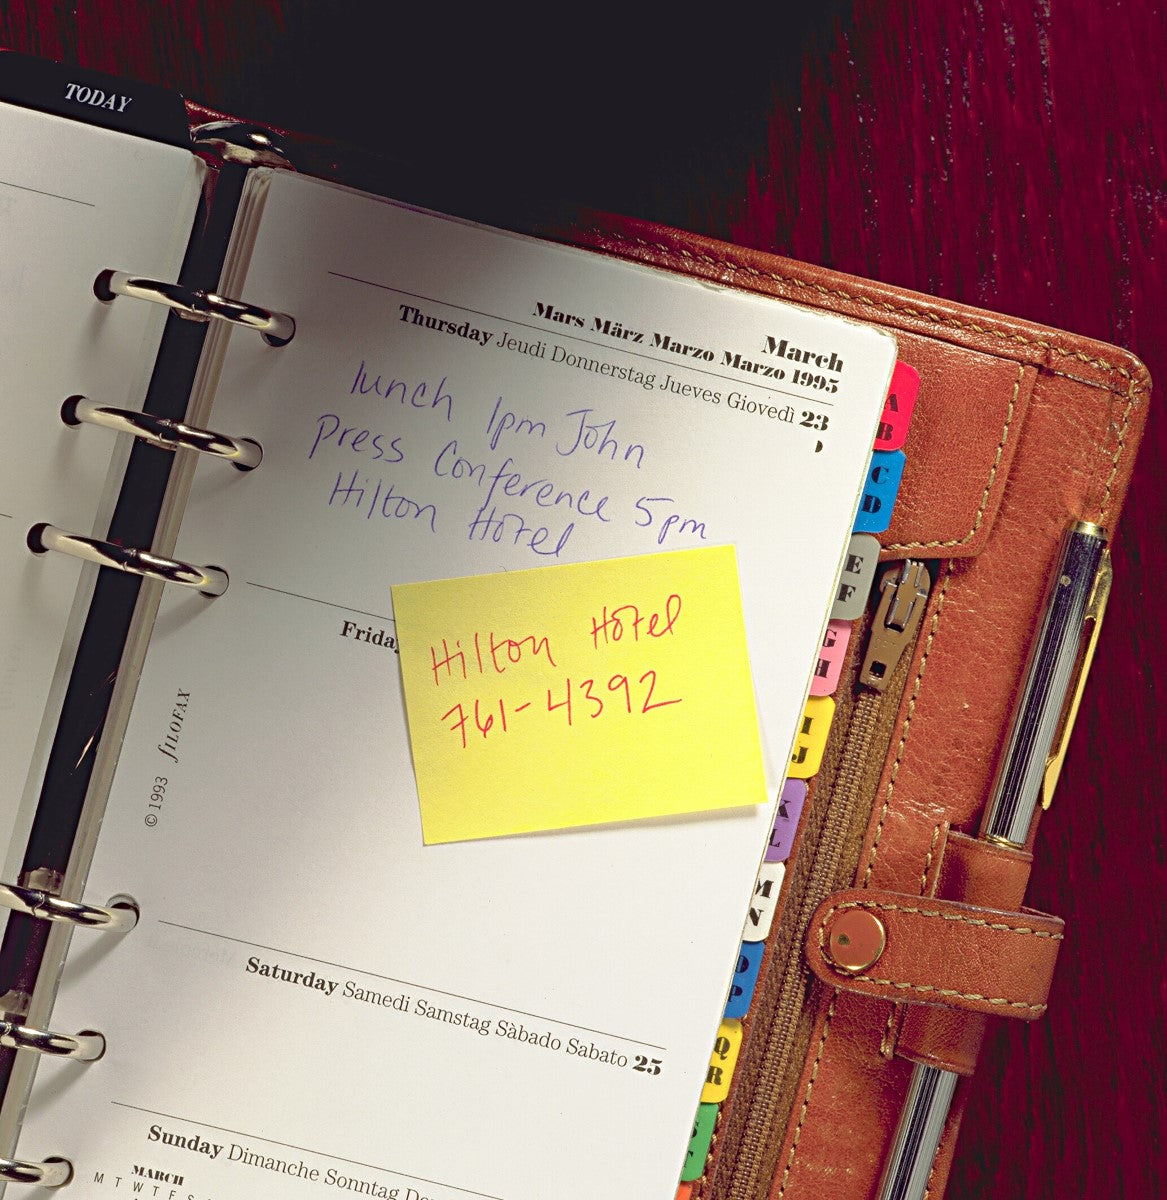 TODAY
March
Mars März Marzo Marzo 1995
Thursday Jeudi Donnerstag Jueves Giovedì 23
lunch 1pm John
Press Conference 5pm
Hilton Hotel
Hilton Hotel
761-4392
© 1993 fILOFAX
Saturday Samedi Samstag Sàbado Sabato 25
Sunday Dimanche Sonntag
MARCH
M T W T F S
A
B
C
D
E
F
G
H
I
J
K
L
M
N
O
P
Q
R
S
T